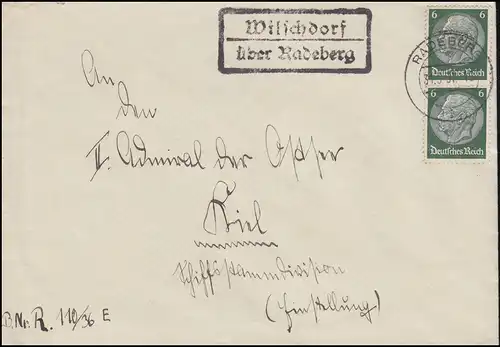 Wilschdorf
über Radeberg
RADEBERG
6 6
Deutsches Reich
6 6
Deutsches Reich
An
den
II. Admiral der Ostsee
Kiel
Schiffsstammdivision
(Einstellung)
B. Nr. R. 110/36 E